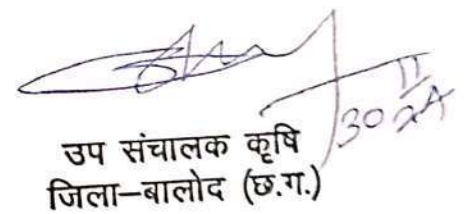 30
उप संचालक कृषि
जिला–बालोद (छ.ग.)